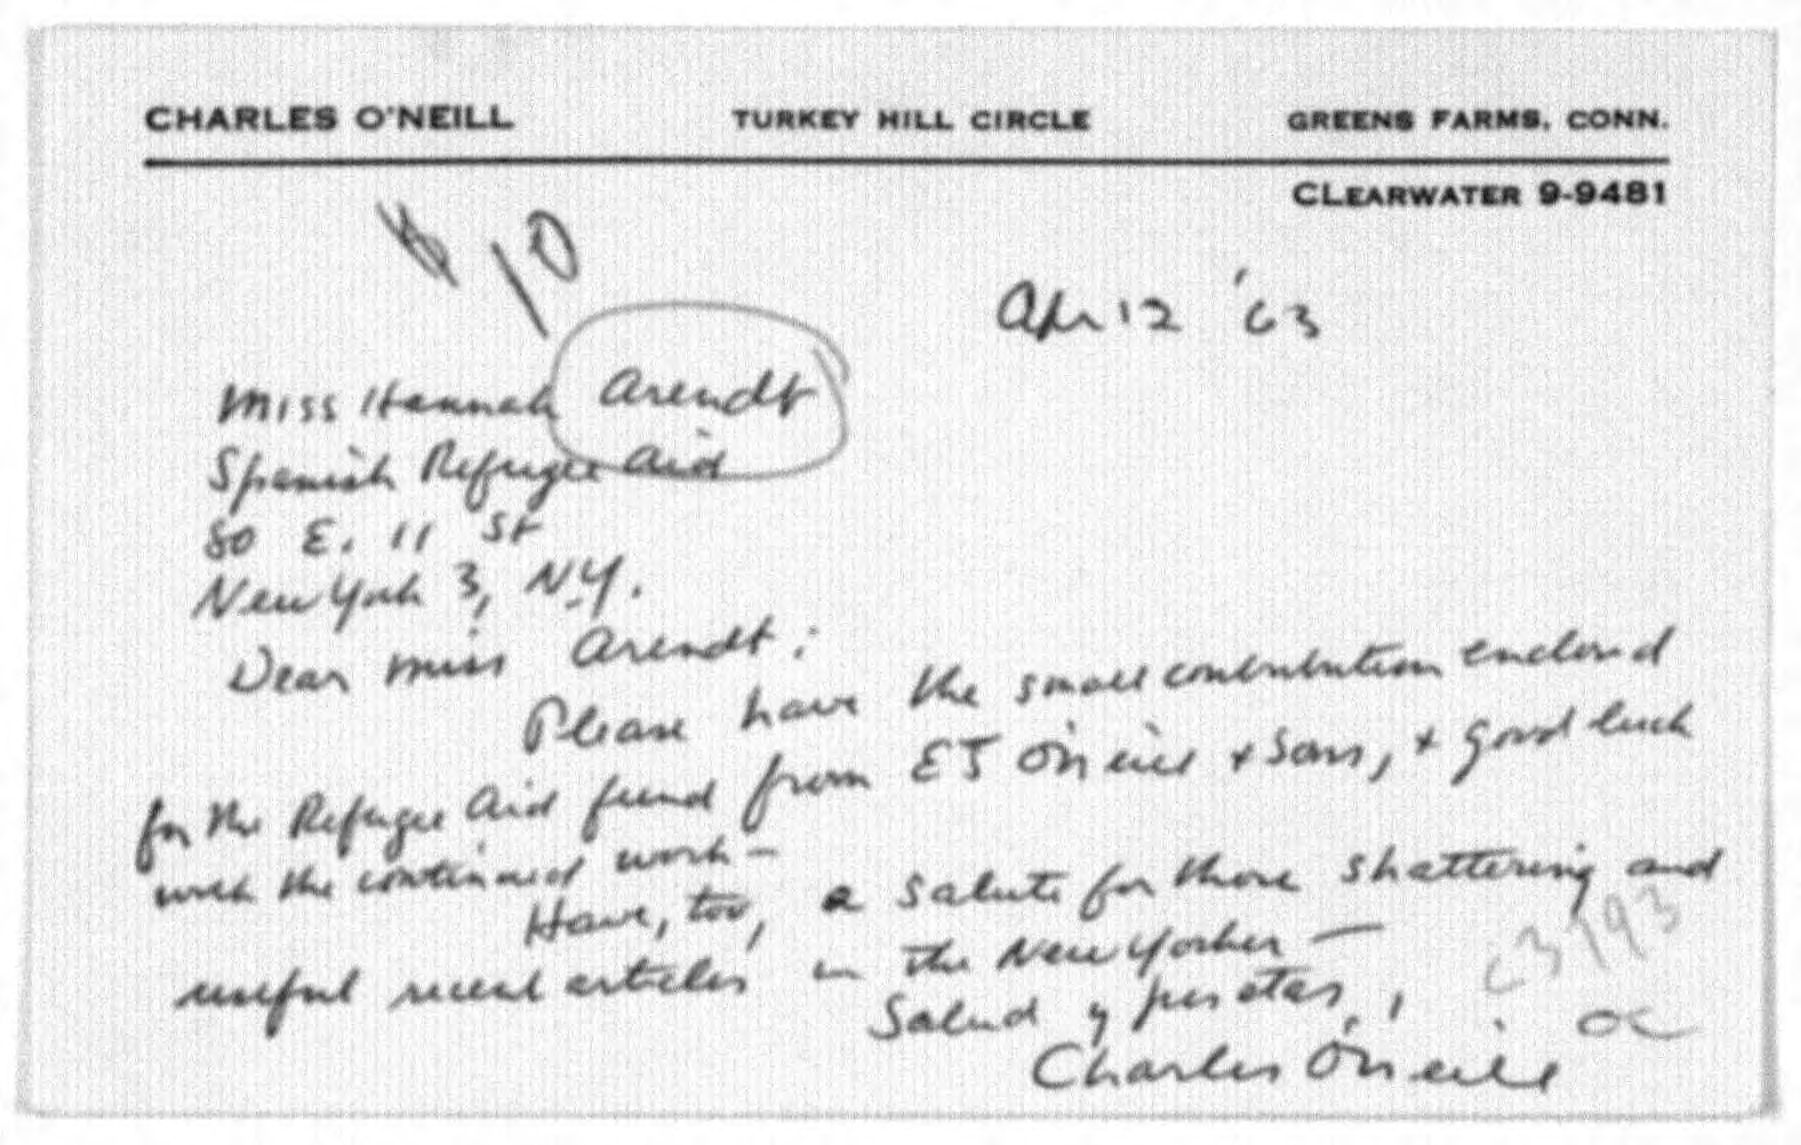 CHARLES O'NEILL TURKEY HILL CIRCLE GREENS FARMS, CONN.
CLEARWATER 9-9481
$10
Apr 12 '63
Miss Hannah Arendt
Spanish Refugee Aid
80 E. 11 St
New York 3, N.Y.
Dear Miss Arendt:
Please have the small contribution enclosed
for the Refugee Aid fund from EJ O'Neill + Sons, + good luck
with the continued work —
Have, too, a salute for those shattering and
useful recent articles in the New Yorker —
Salud y pesetas,
C3193
Charles O'Neill